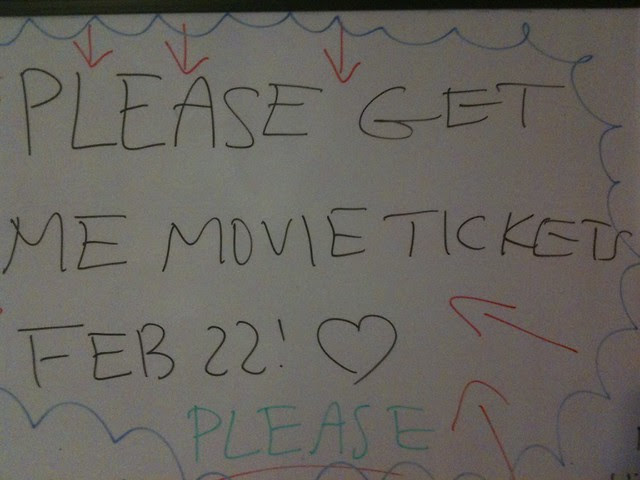 PLEASE GET
ME MOVIE TICKETS
FEB 22! ♡
PLEASE